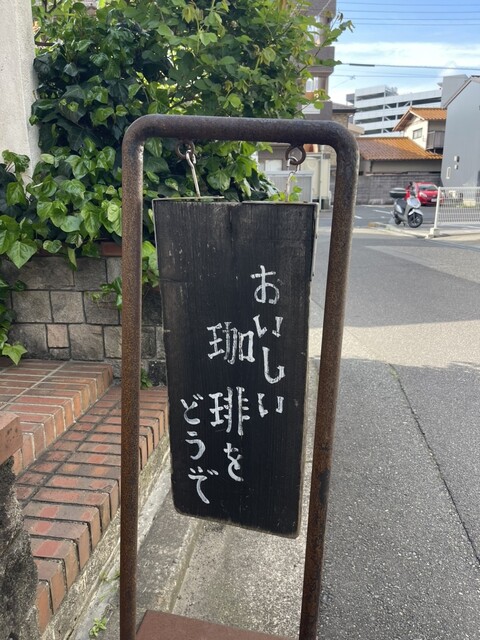 おいしい
珈琲を
どうぞ